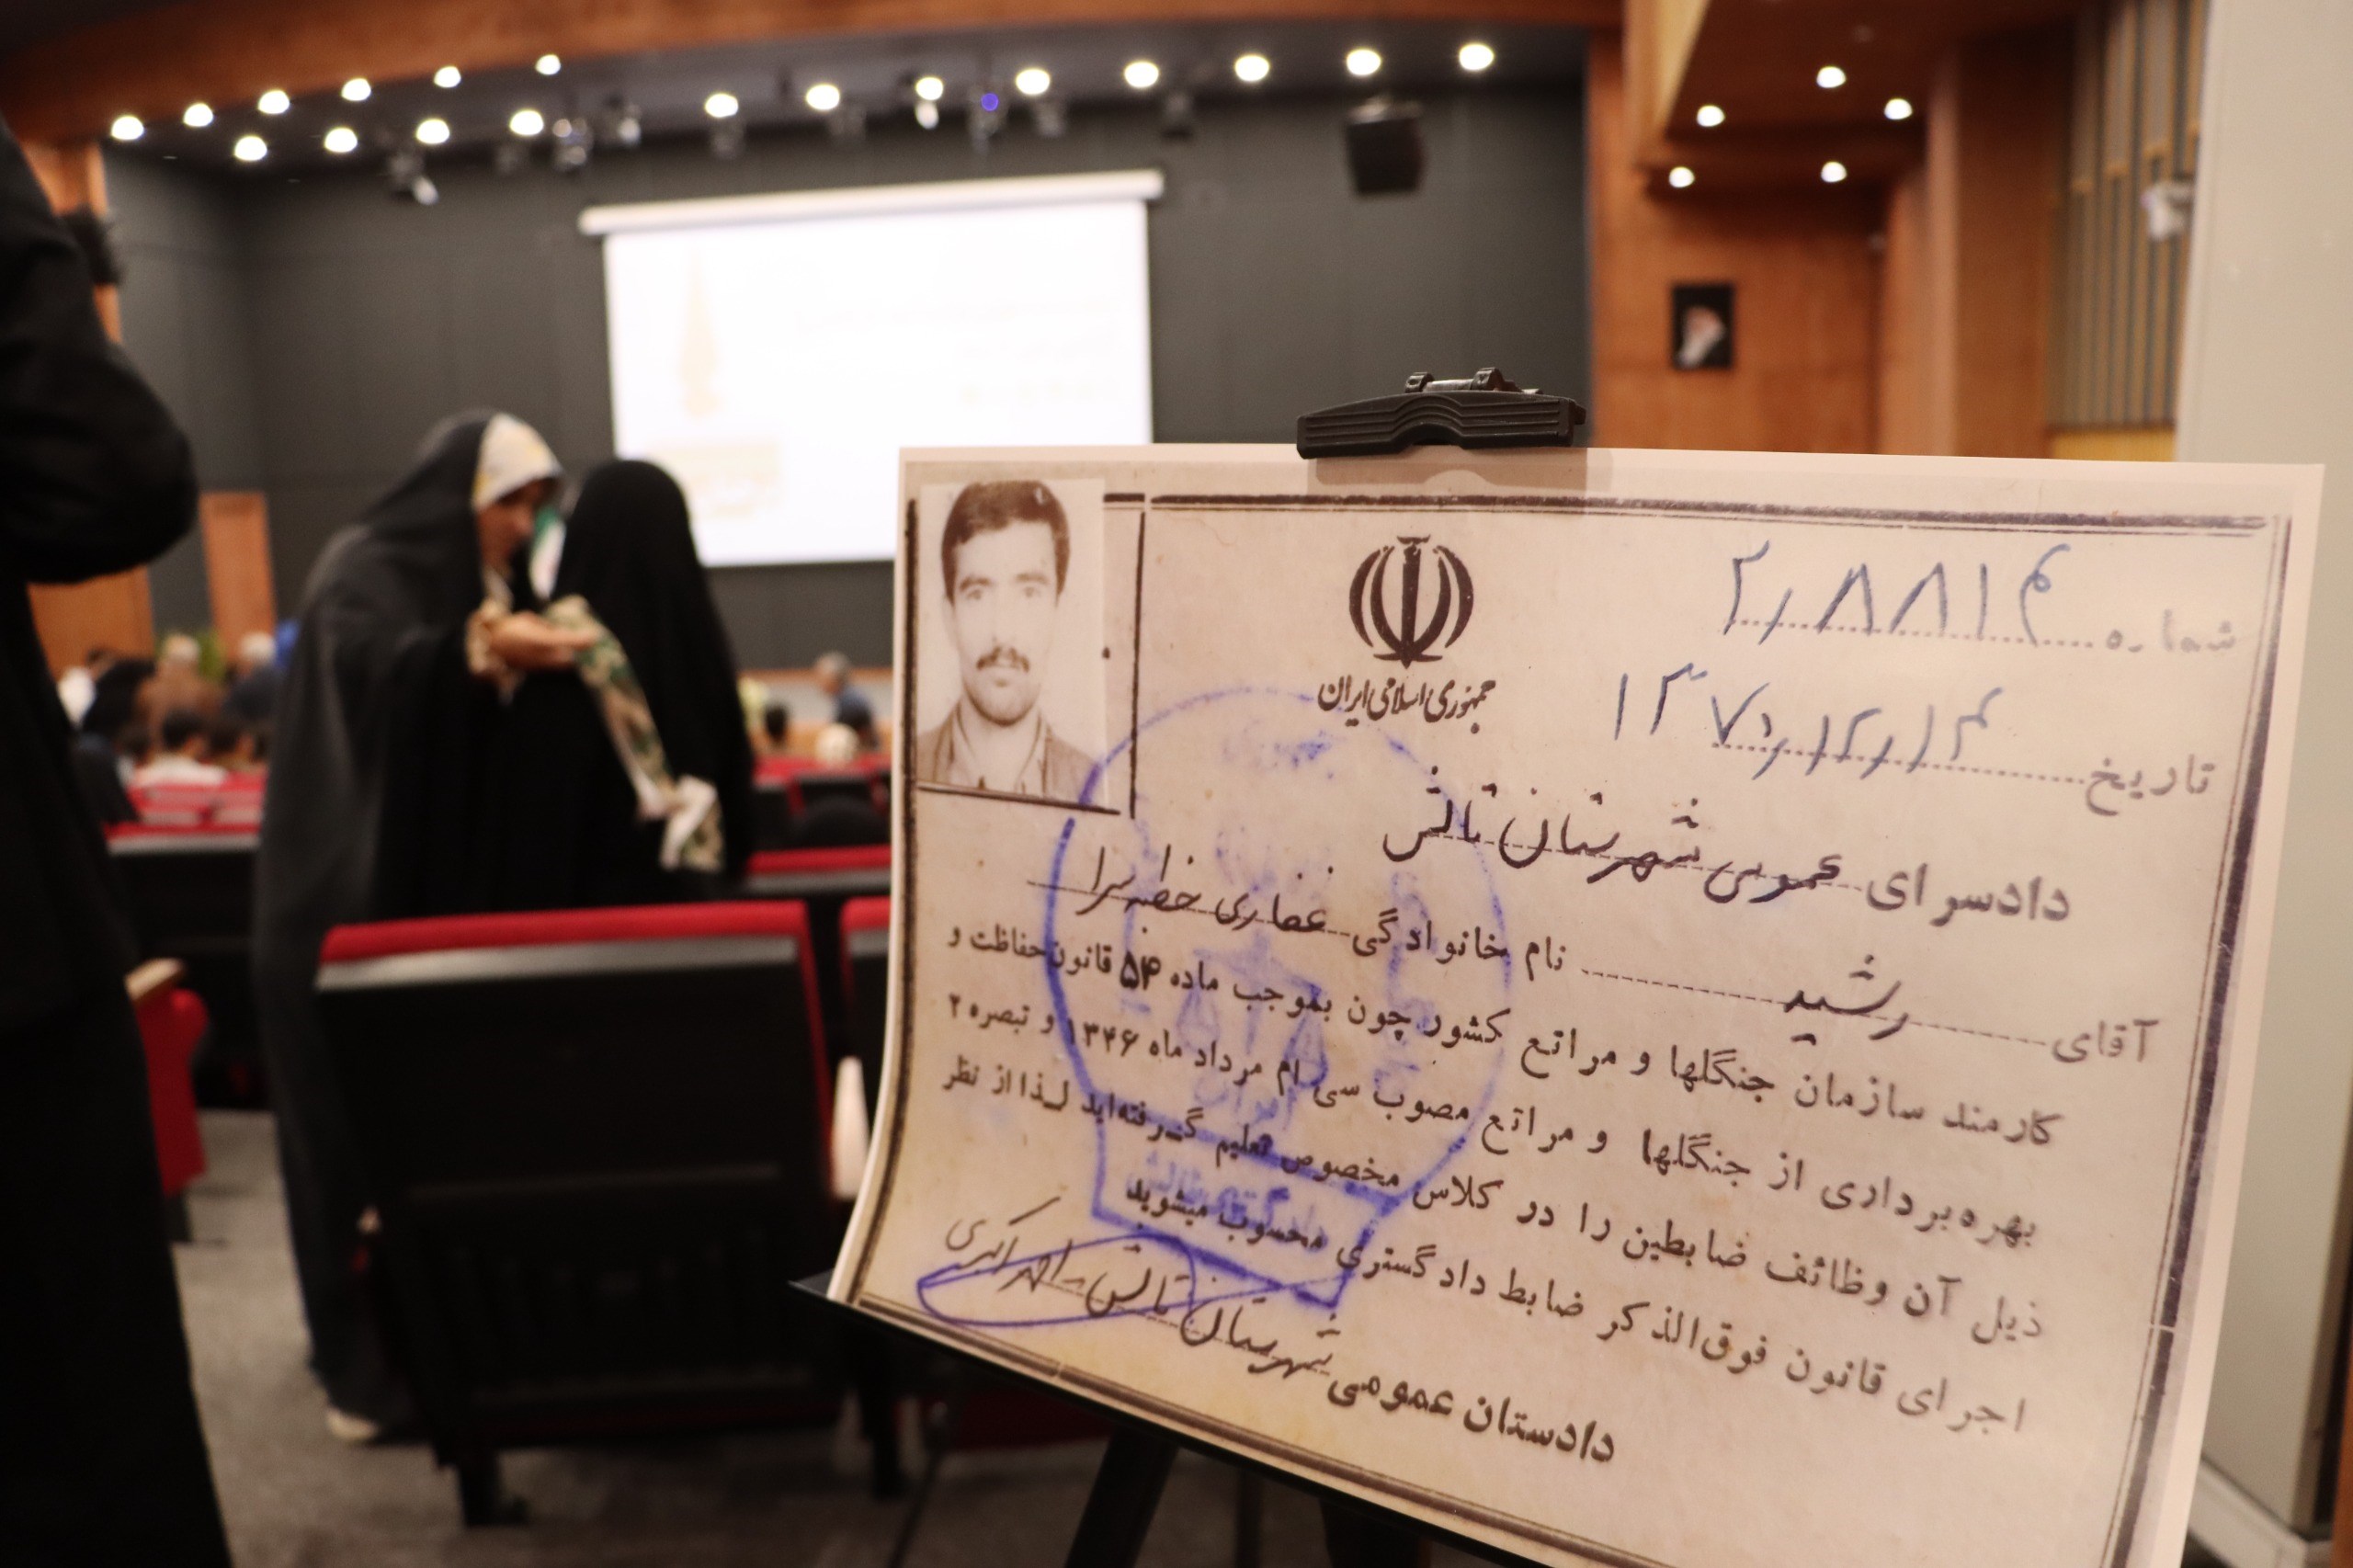 جمهوری اسلامی ایران
شماره ۲٫۸۸۱۴
تاریخ ۱۳۷۰٫۱۲٫۱۴
دادسرای عمومی شهرستان تالش
آقای رشید نام خانوادگی غفاری خطبه سرا
کارمند سازمان جنگلها و مراتع کشور چون بموجب ماده ۵۴ قانون حفاظت و
بهره برداری از جنگلها و مراتع مصوب سی ام مرداد ماه ۱۳۴۶ و تبصره ۲
ذیل آن وظائف ضابطین را در کلاس مخصوص تعلیم گرفته اید لذا از نظر
اجرای قانون فوق الذکر ضابط دادگستری محسوب میشوید
دادستان عمومی شهرستان تالش